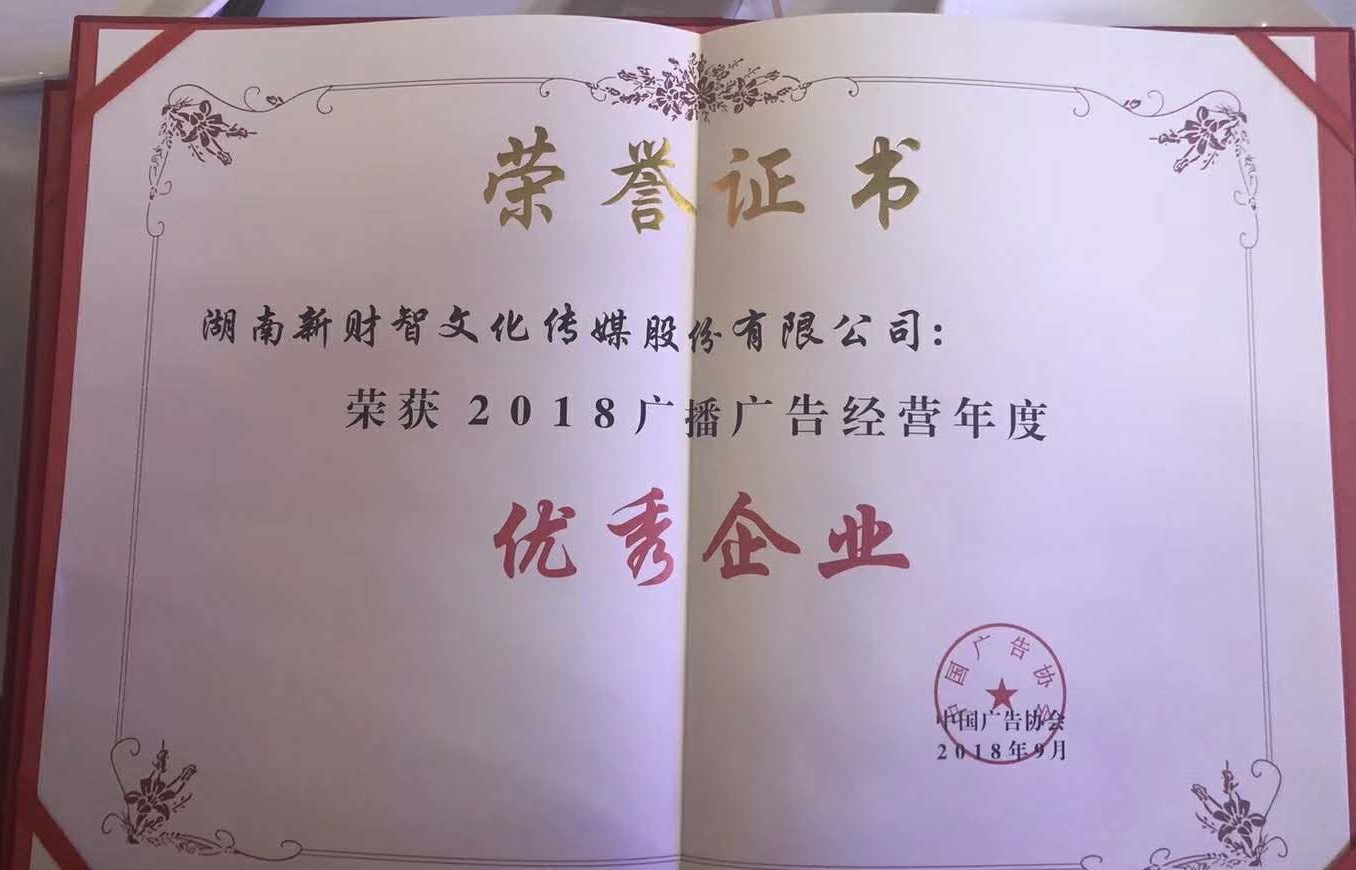 荣誉证书
湖南新财智文化传媒股份有限公司：
荣获2018广播广告经营年度
优秀企业
中国广告协会
中国广告协会
2018年9月